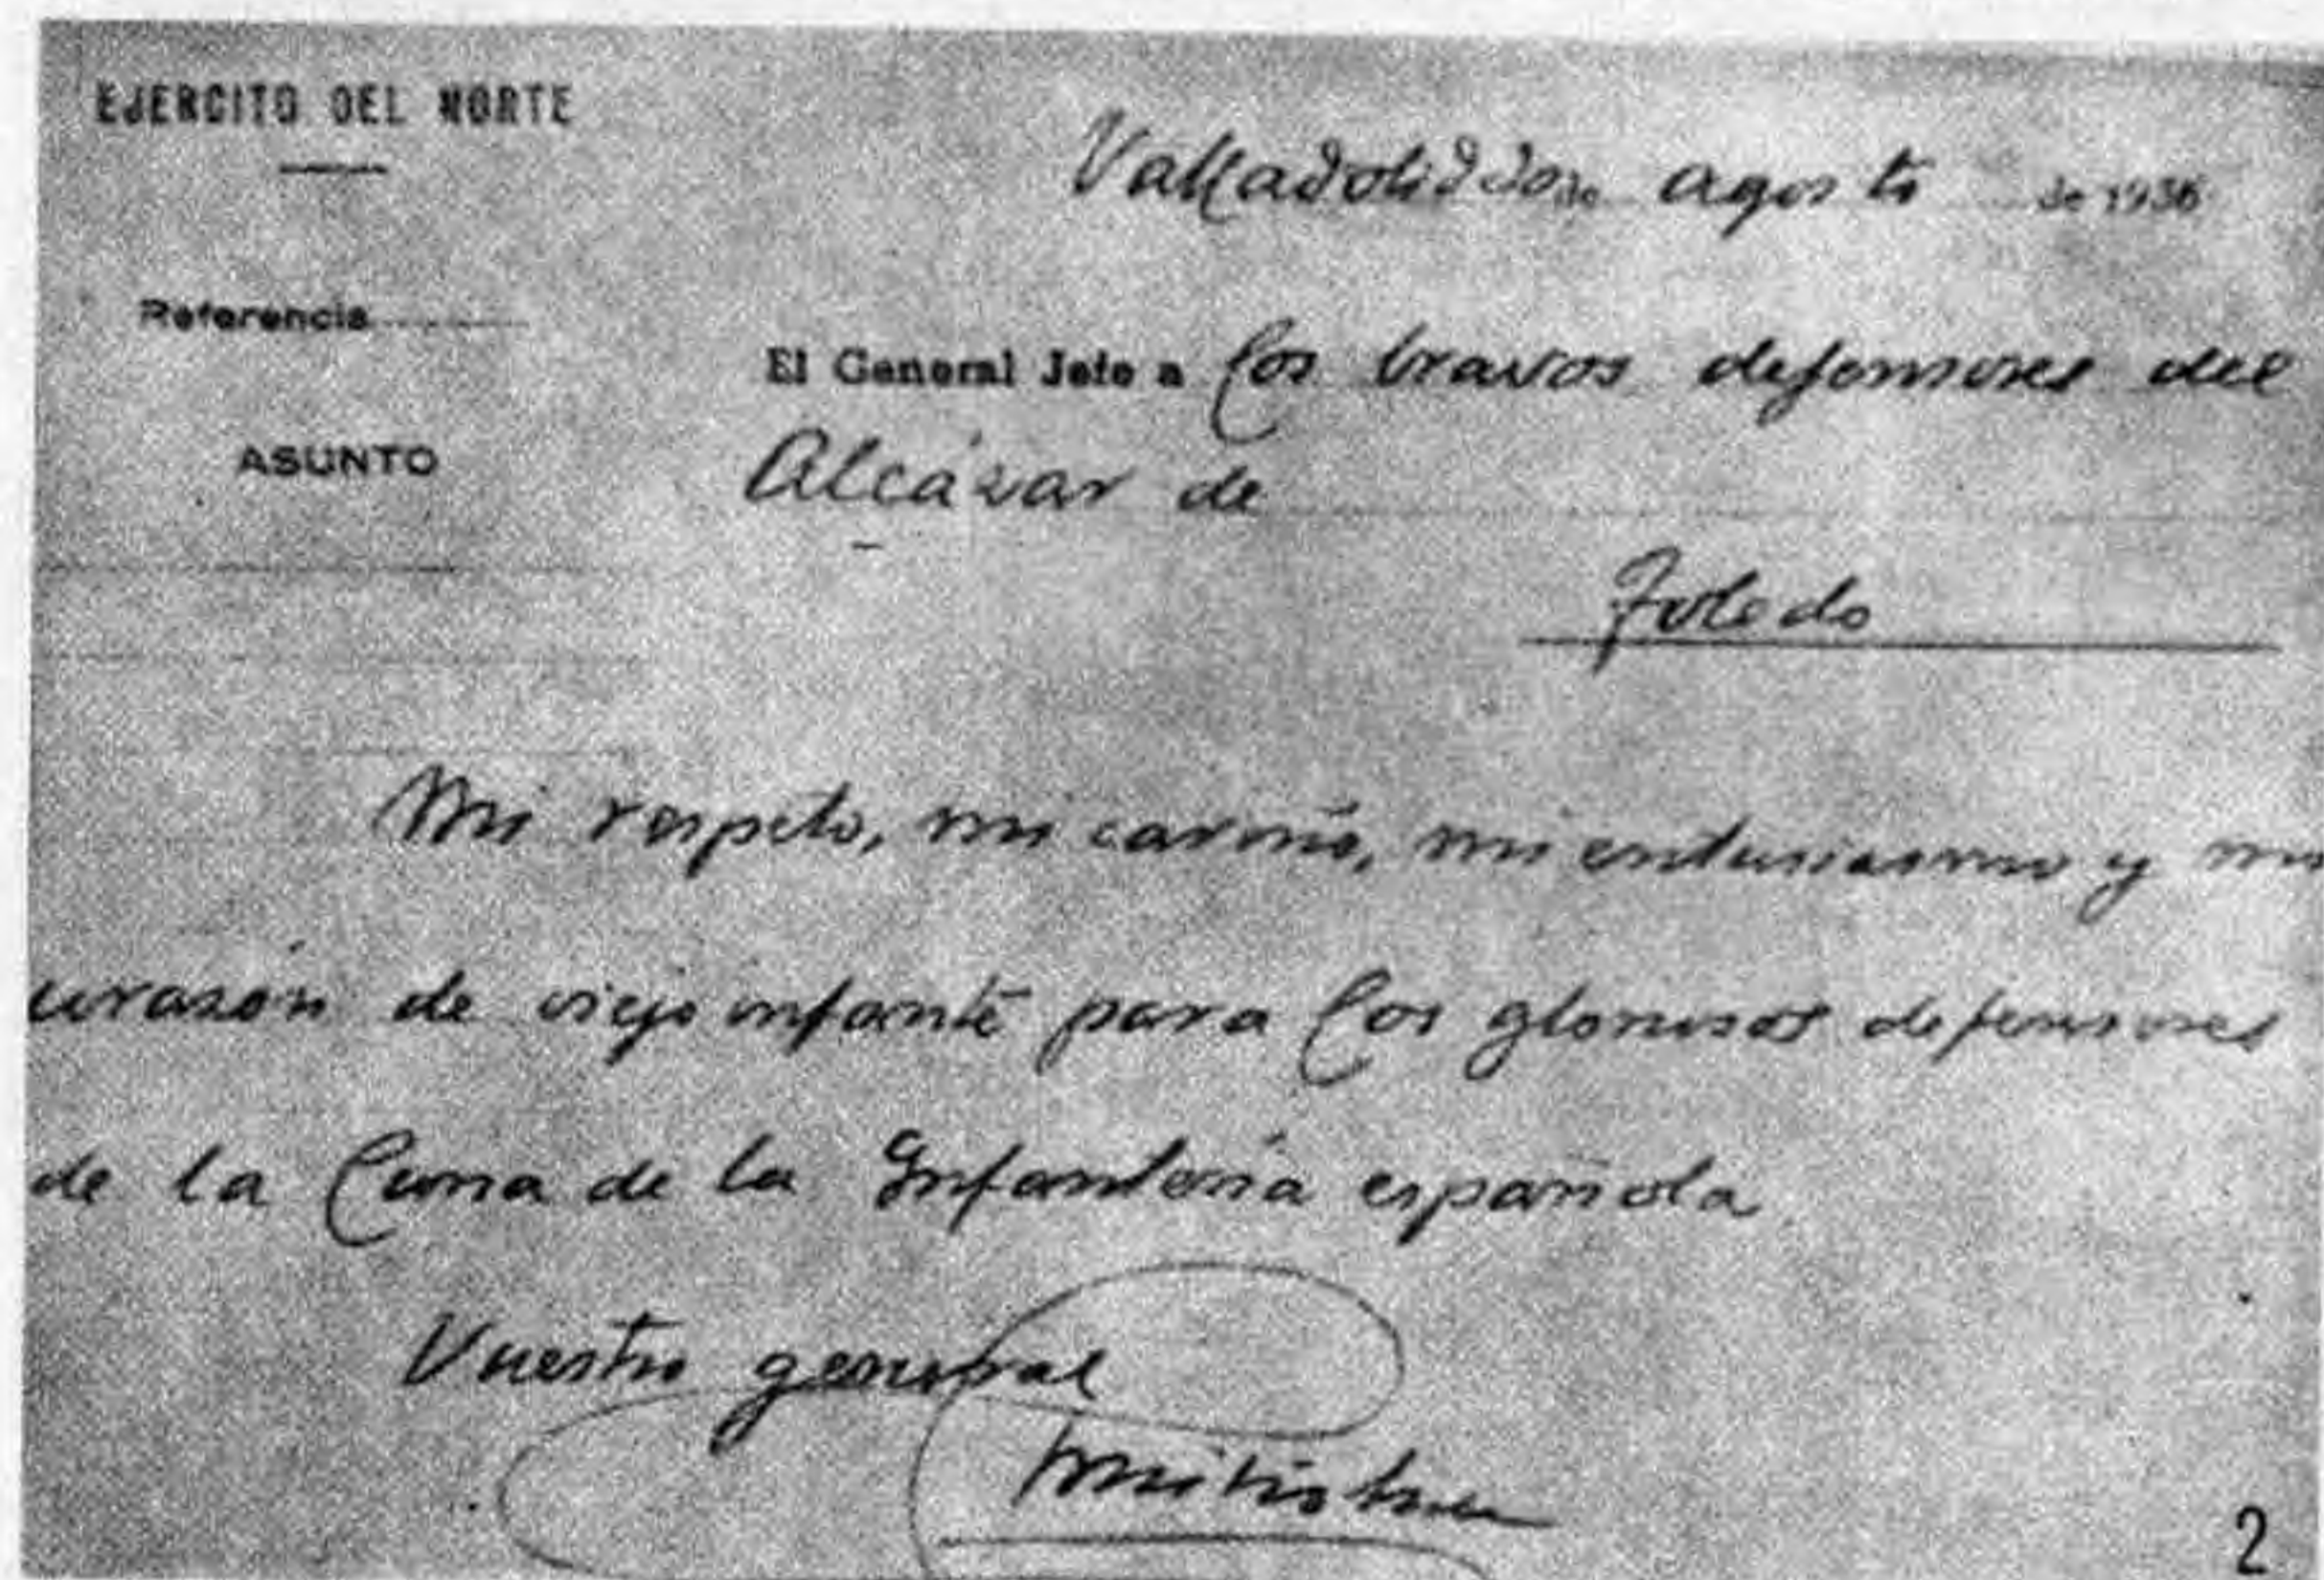 EJERCITO DEL NORTE
Valladolid 30 de agosto de 1936
Referencia
El General Jefe a los bravos defensores del
ASUNTO
Alcázar de
Toledo
Mi respeto, mi cariño, mi entusiasmo y mi
corazón de viejo infante para los gloriosos defensores
de la Cuna de la Infantería española
Vuestro general
2